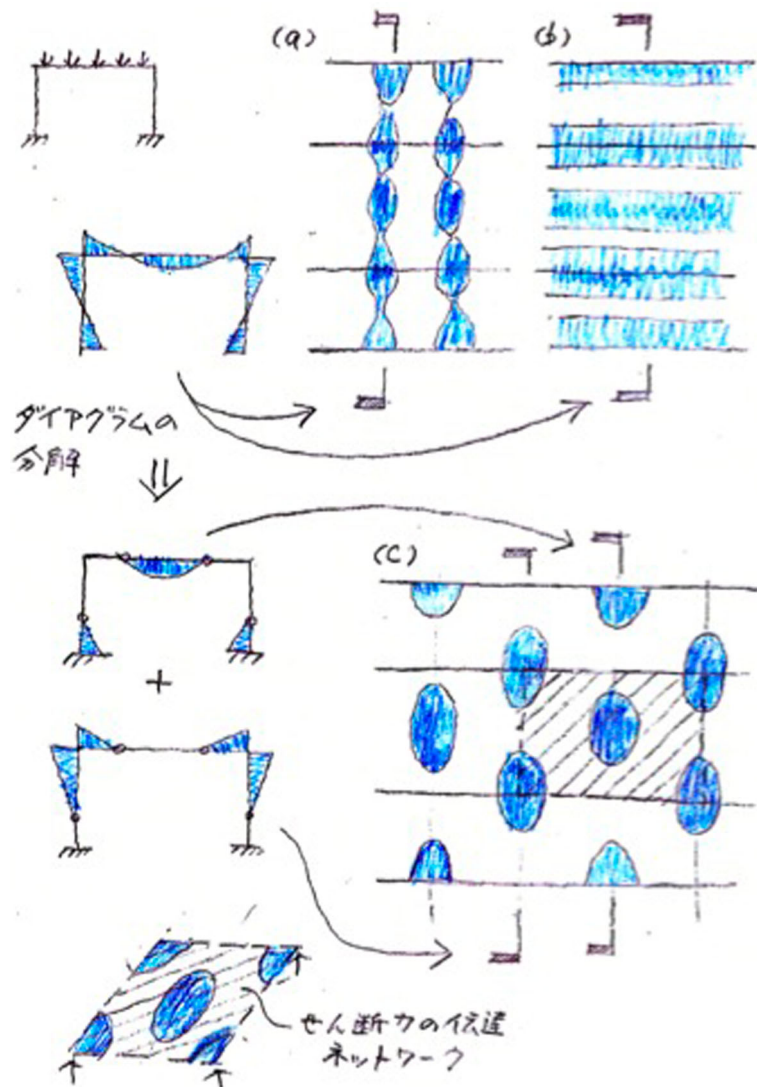 (a)
(b)
ダイアグラムの
分解
(C)
+
せん断力の伝達
ネットワーク